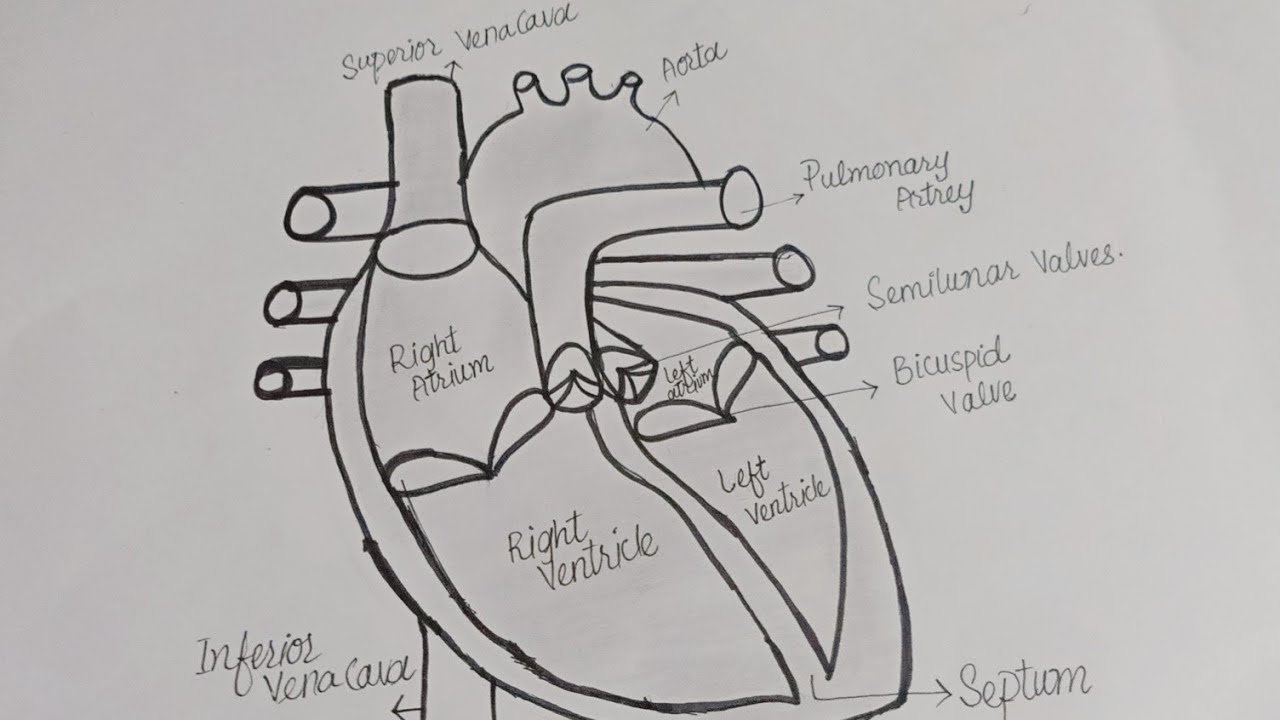 Superior Vena Cava
Aorta
Pulmonary
Artrey
Semilunar Valves.
Right
Atrium
Left
atrium
Bicuspid
Valve
Left
Ventricle
Right
Ventricle
Inferior
Vena Cava
Septum